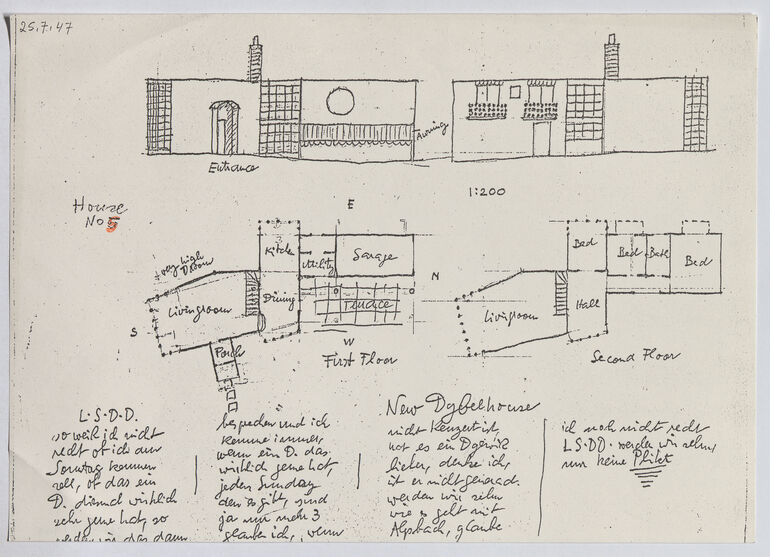 25.7.47
Awning
Entrance
1:200
House
No 5
E
very high
Kitch
Utility
Garage
Bed
Bed
Bath
Bed
N
Livingroom
Dining
Terrace
Livigroom
Hall
S
Porch
W
First Floor
Second Floor
L.S.D.D.
so weiß ich nicht
recht ob ich am
Sonntag kommen
soll, ob das ein
D. diesmal wirklich
sehr gerne hat, so
werden wir das dann
besprechen und ich
komme immer,
wenn ein D. das
wirklich gerne hat,
jeden Sunday
den es gibt, sind
ja nur mehr 3
glaube ich, wenn
New Dybelhouse
nicht Konzert ist,
hat es ein
lieber, denke ich,
ist er nicht
werden wir sehn
wie es geht mit
Alpbach, glaube
ich noch nicht recht
L.S.DD. werden wir sehn,
nur keine